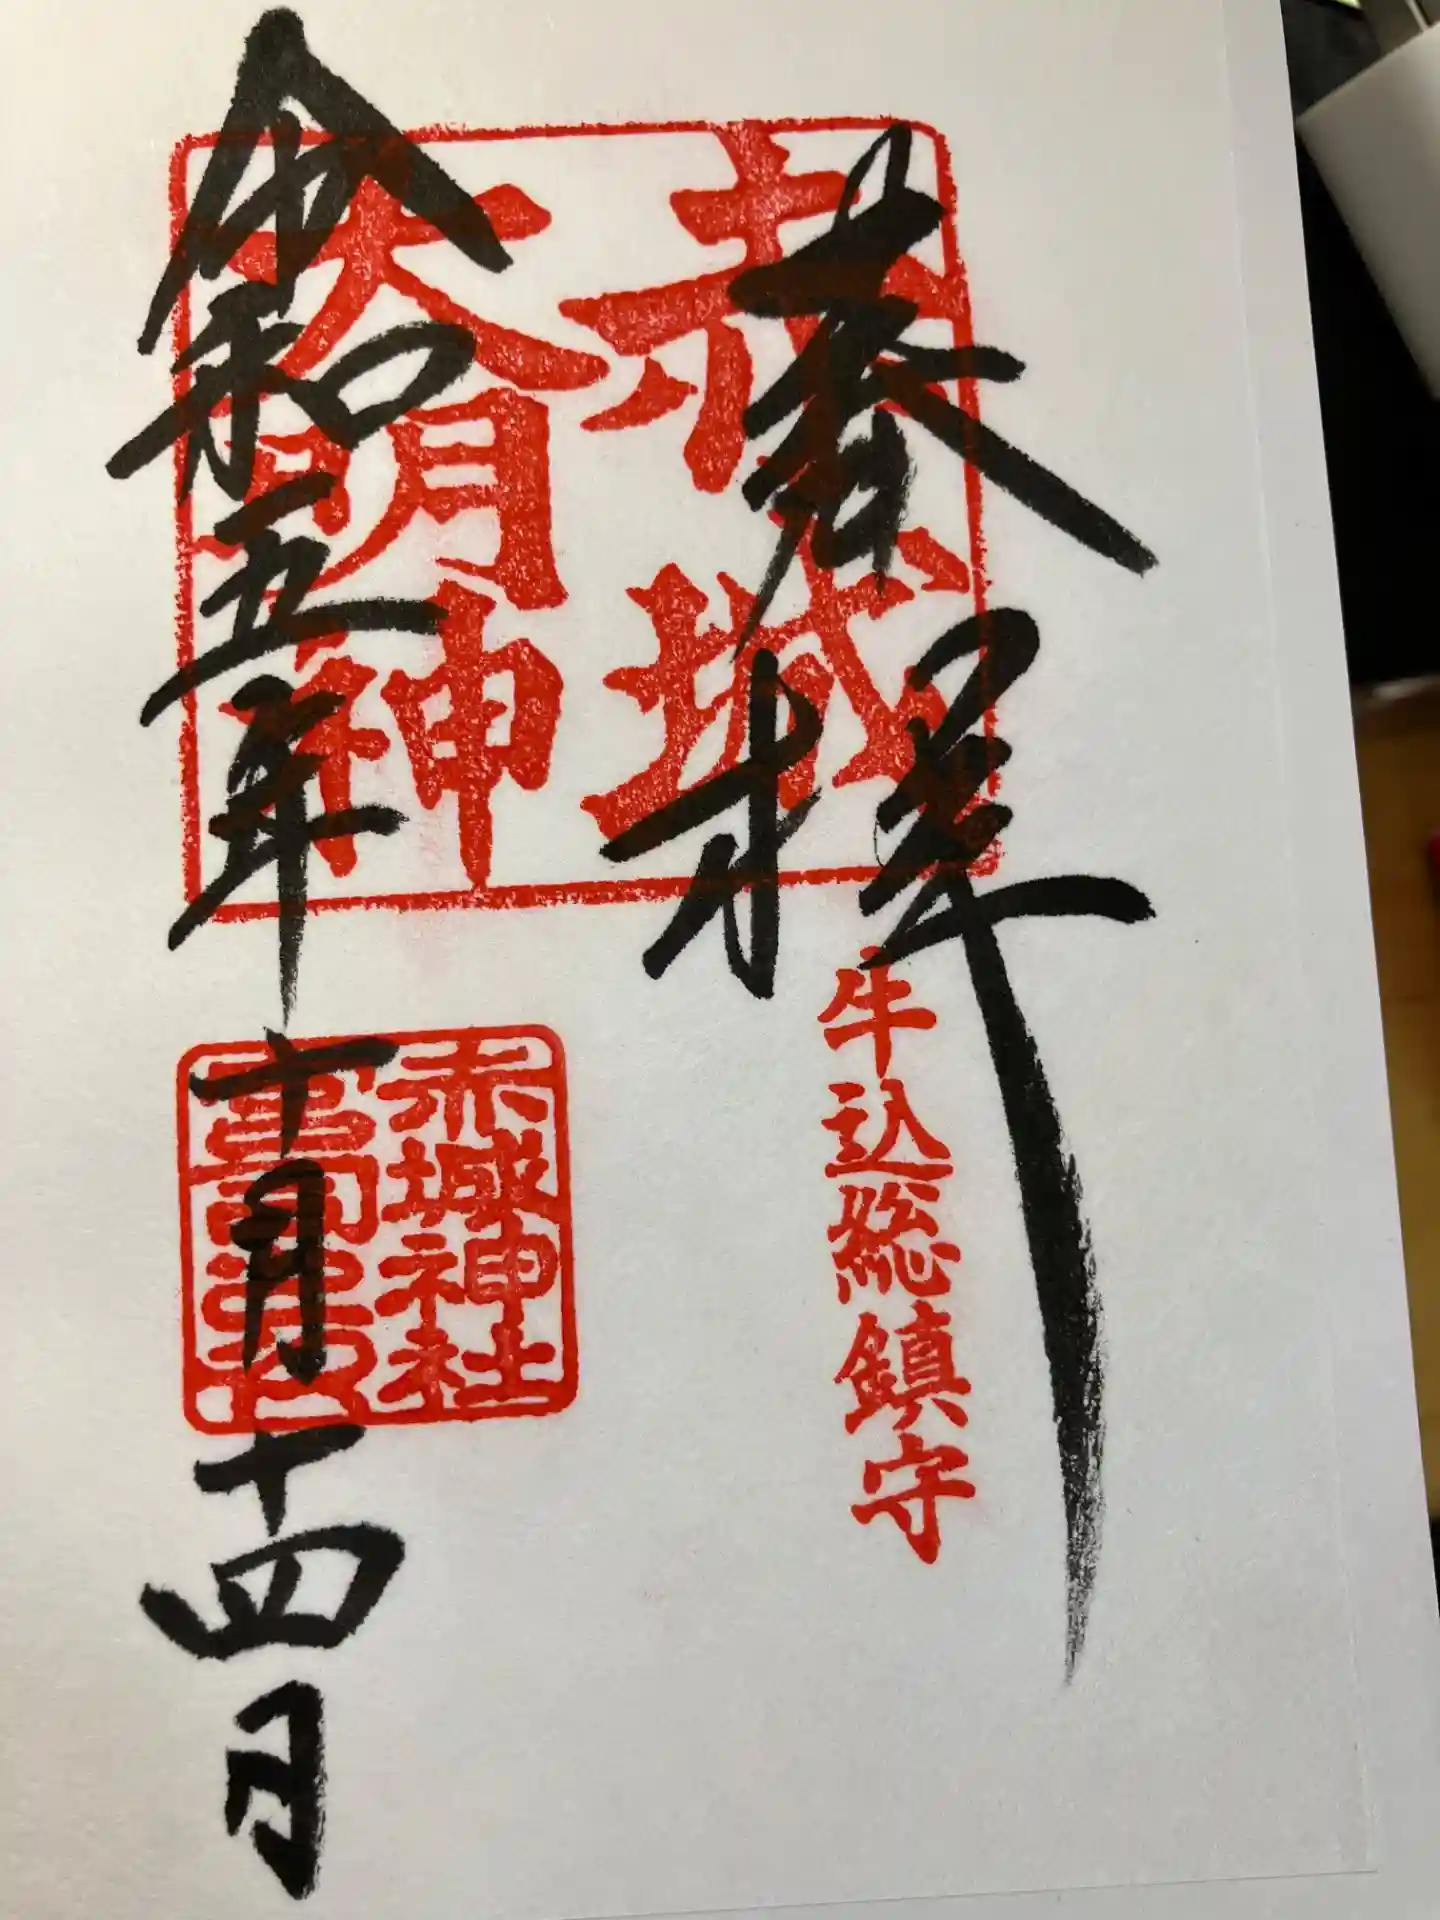 奉拝
赤城
大明神
牛込総鎮守
赤城神社
令和五年十月十四日